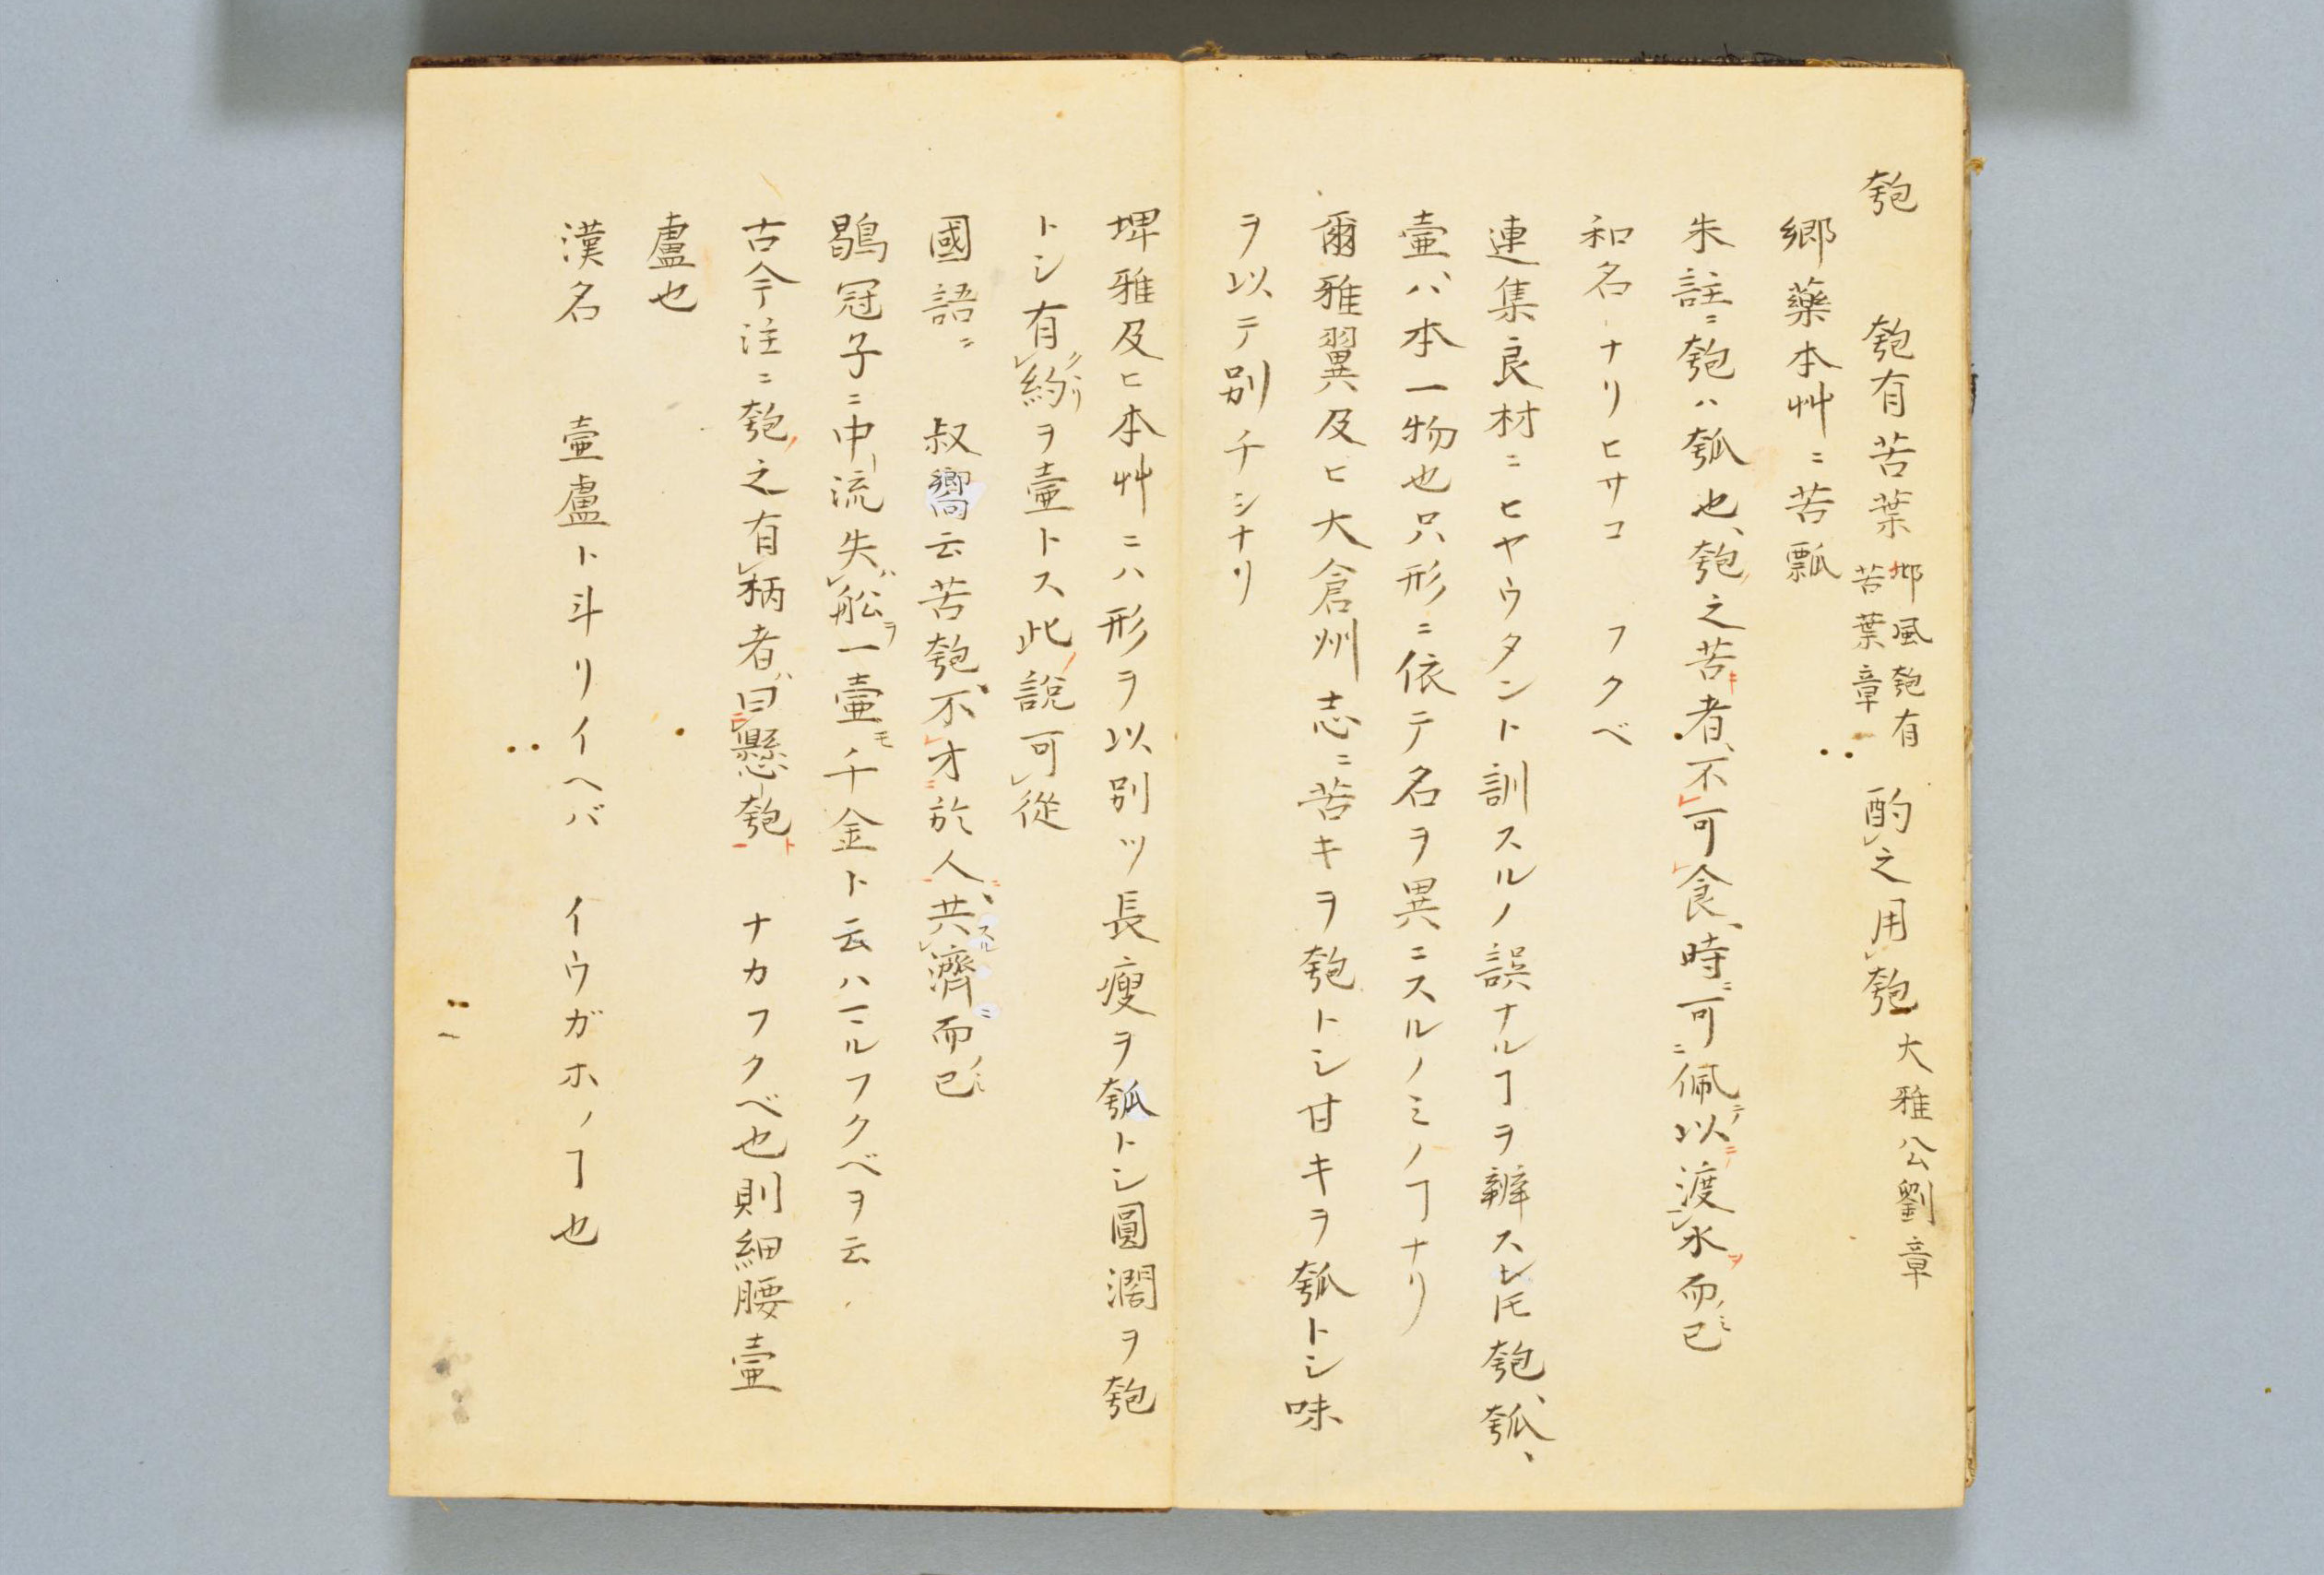 匏 匏有苦葉 邶風匏有苦葉章 酌之用匏 大雅公劉章
郷藥本艸ニ苦瓢
朱註ニ匏ハ瓠也、匏之苦キ者、不可食、時ニ可佩テ以テ渡水ヲ而已ノミ
和名ナリヒサコ フクベ
連集良材ニヒヤウタント訓スルノ誤ナルヿヲ辨スレ𪜈匏、瓠、
壷ハ本一物也只形ニ依テ名ヲ異ニスルノミノヿナリ
爾雅翼及ヒ大倉州志ニ苦キヲ匏トシ甘キヲ瓠トシ味
ヲ以テ別チシナリ
埤雅及ヒ本艸ニハ形ヲ以別ツ長瘦ヲ瓠トシ圓濶ヲ匏
トシ有約クヽリヲ壷トス此說可從
國語ニ 叔嚮云苦匏、不才於人、共濟スルニ而已ノミ
鶡冠子ニ中流失ハ舩ヲ一壷モ千金ト云ハ一ニルフクベヲ云
古今注ニ匏之有柄者ハ曰懸匏ト ナカフクベ也則細腰壷
盧也
漢名 壷盧ト斗リイヘバ イウガホノヿ也